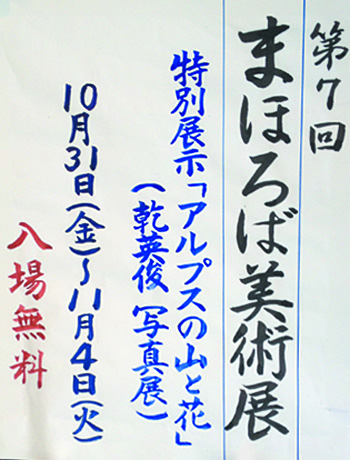 第7回
まほろば美術展
特別展示「アルプスの山と花」
(乾英俊 写真展)
10月31日(金)~11月4日(火)
入場無料